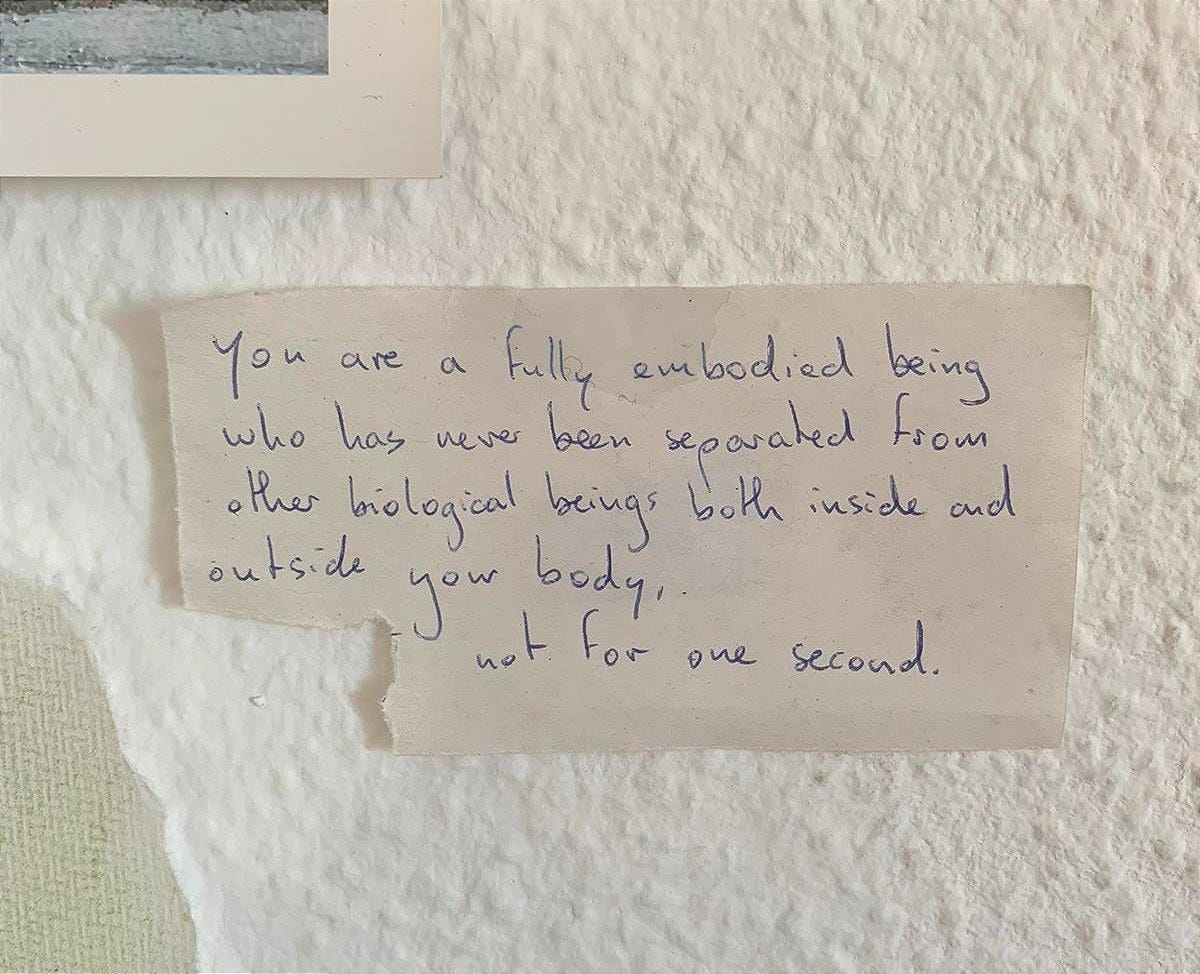 You are a fully embodied being
who has never been separated from
other biological beings both inside and
outside your body,
not for one second.